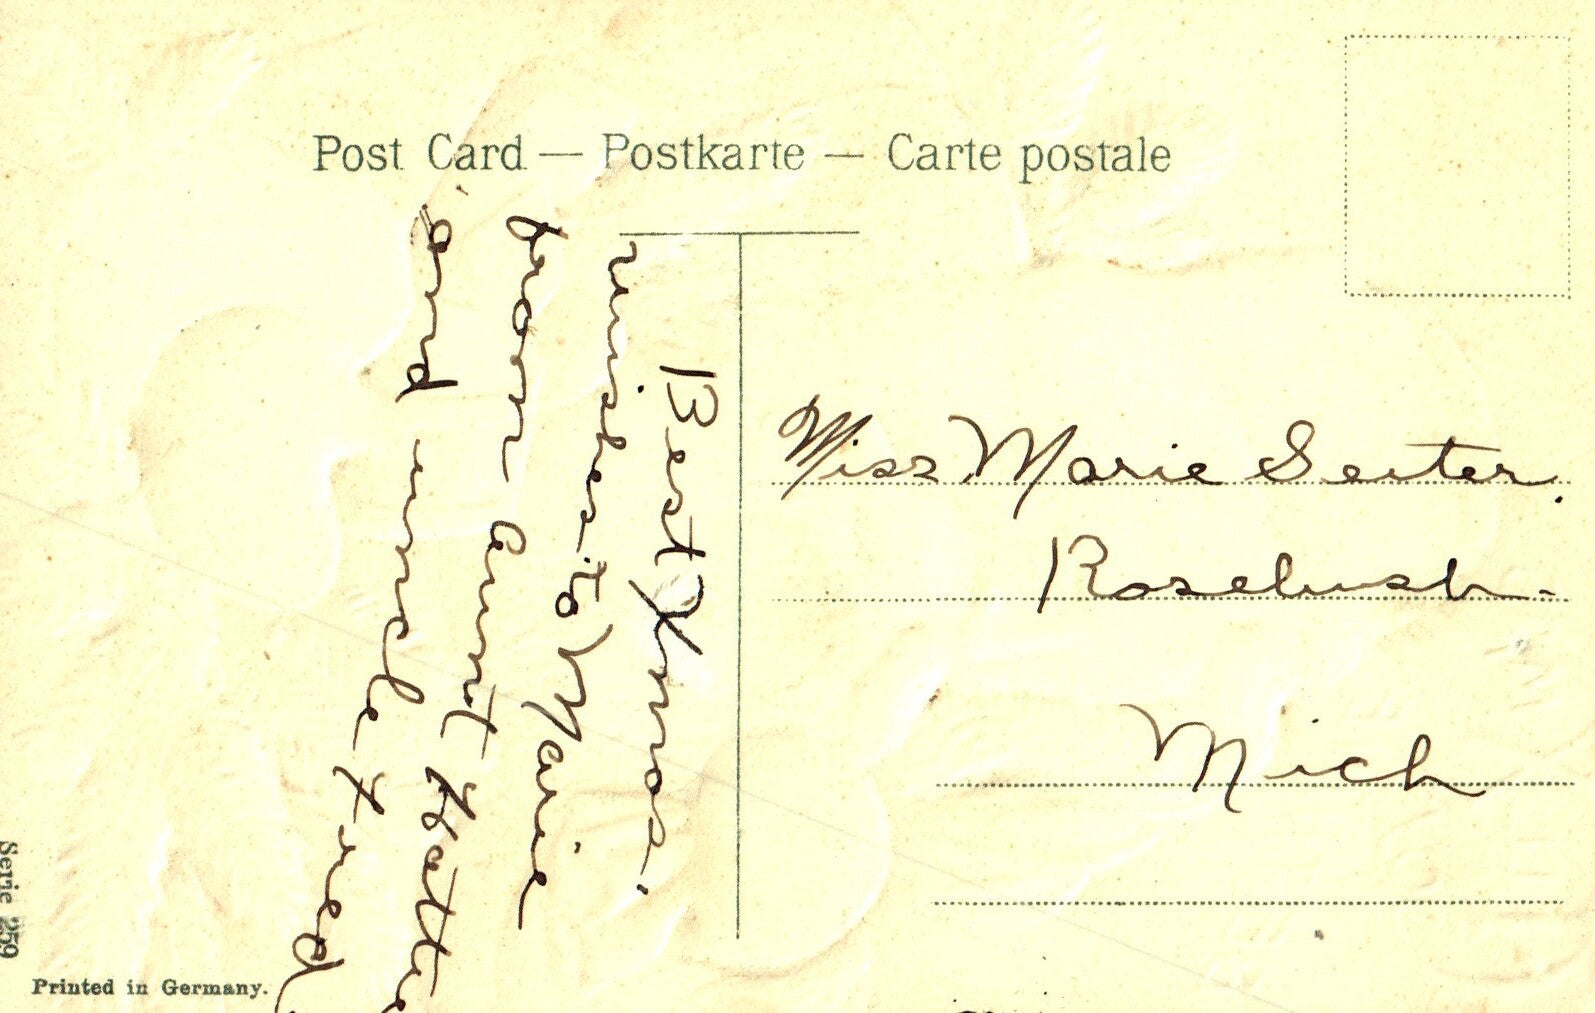 Post Card — Postkarte — Carte postale
Best Xmas.
wishes to Marie
from Aunt Hattie
and uncle Fred
Miss Marie Seiter.
Rosebush.
Mich
Serie 259
Printed in Germany.